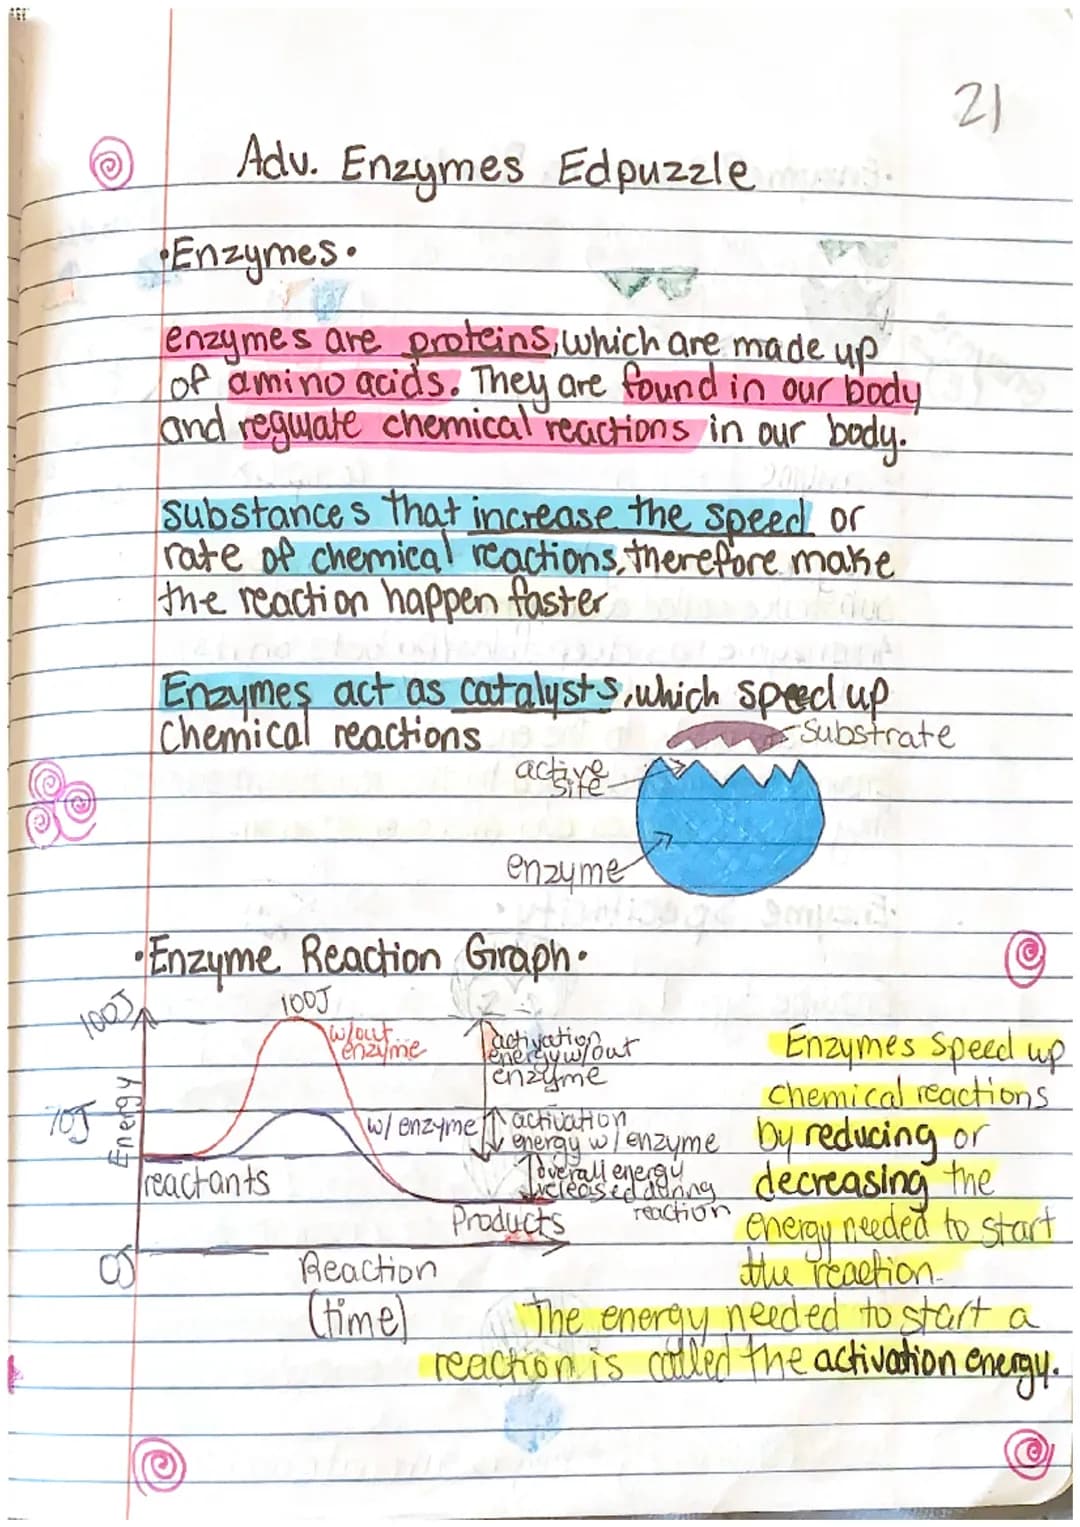 21
Adv. Enzymes Edpuzzle
•Enzymes•
enzymes are proteins, which are made up
of amino acids. They are found in our body
and regulate chemical reactions in our body.
substances that increase the speed or
rate of chemical reactions, therefore make
the reaction happen faster
Enzymes act as catalysts, which speed up
chemical reactions
substrate
active
site
enzyme
•Enzyme Reaction Graph•
100J
100J
w/out
enzyme
activation
energy w/out
enzyme
70J
Energy
w/ enzyme
activation
energy w/ enzyme
reactants
overall energy
released during
reaction
Products
0J
Reaction
(time)
Enzymes speed up
chemical reactions
by reducing or
decreasing the
energy needed to start
the reaction.
The energy needed to start a
reaction is called the activation energy.